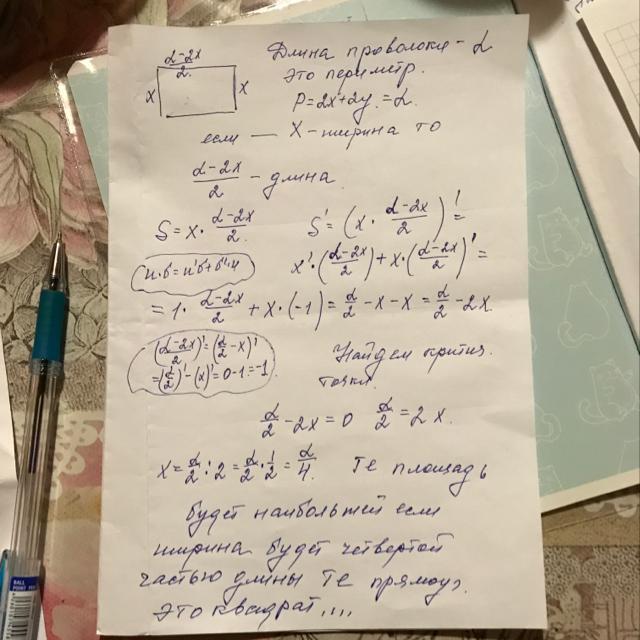 α-2x/2
x x
Длина проволоки - α
это периметр.
P=2x+2y=α.
если — X-ширина то
α-2x/2 - длина
S=x·α-2x/2 S'=(x·α-2x/2)'=
u·b=u'b+b'u x'·(α-2x/2)+x·(α-2x/2)'=
=1·α-2x/2+x·(-1)=α/2-x-x=α/2-2x
(α-2x/2)'=(α/2-x)'
=(α/2)'-(x)'=0-1=-1
Найдем критич.
точки
α/2-2x=0 α/2=2x.
x=α/2:2=α/2·1/2=α/4. Те площадь
будет наибольшей если
ширина будет четвертой
частью длины Те прямоуг.
это квадрат....
BALL
POINT PEN